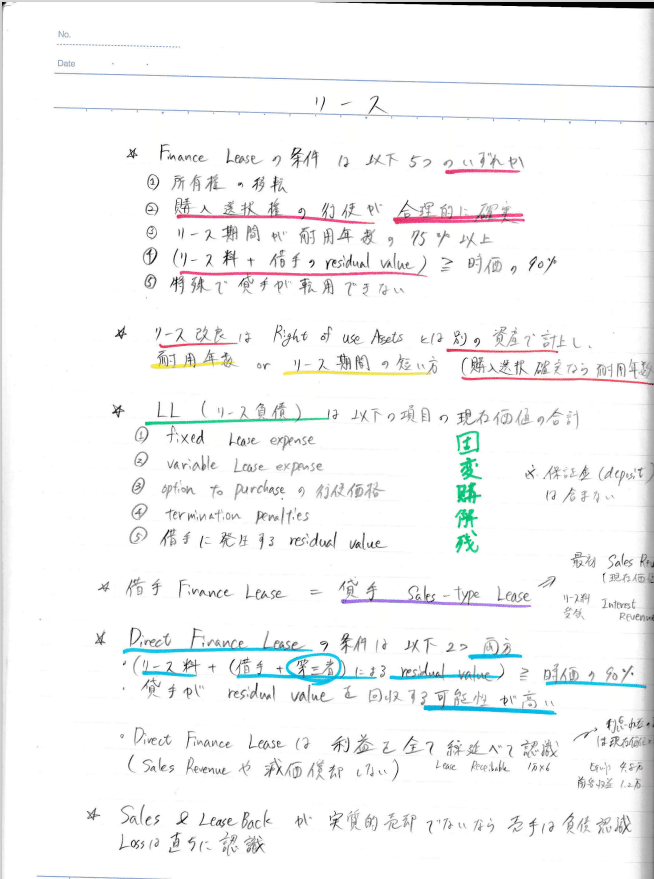 No.
Date
リース
☆ Finance Lease の条件は以下5つのいずれか
① 所有権の移転
② 購入選択権の行使が合理的に確実
③ リース期間が耐用年数の75%以上
④ (リース料 + 借手の residual value) ≧ 時価の90%
⑤ 特殊で貸手が転用できない
☆ リース改良は Right of use Assets とは別の資産で計上し、
耐用年数 or リース期間の短い方 (購入選択確定なら耐用年数
☆ LL (リース負債) は以下の項目の現在価値の合計
① fixed Lease expense
② variable Lease expense
③ option to purchase の行使価格
④ termination penalties
⑤ 借手に発生する residual value
固
変
購
解
残
※ 保証金 (deposit)
は含まない
☆ 借手 Finance Lease = 貸手 Sales-type Lease
最初 Sales Rev
(現在価値
リース料
受領 Interest
Revenue
☆ Direct Finance Lease の条件は以下2つ両方
・(リース料 + (借手 + 第三者) による residual value) ≧ 時価の90%
・ 貸手が residual value を回収する可能性が高い
・Direct Finance Lease は 利益を全て繰延べて認識
(Sales Revenue や 減価償却しない)
Lease Receivable 1万×6
は現在価値
Equip 4.8万
前受収益 1.2万
☆ Sales & Lease Back が 実質的売却でないなら売手は負債認識
Lossは直ちに認識